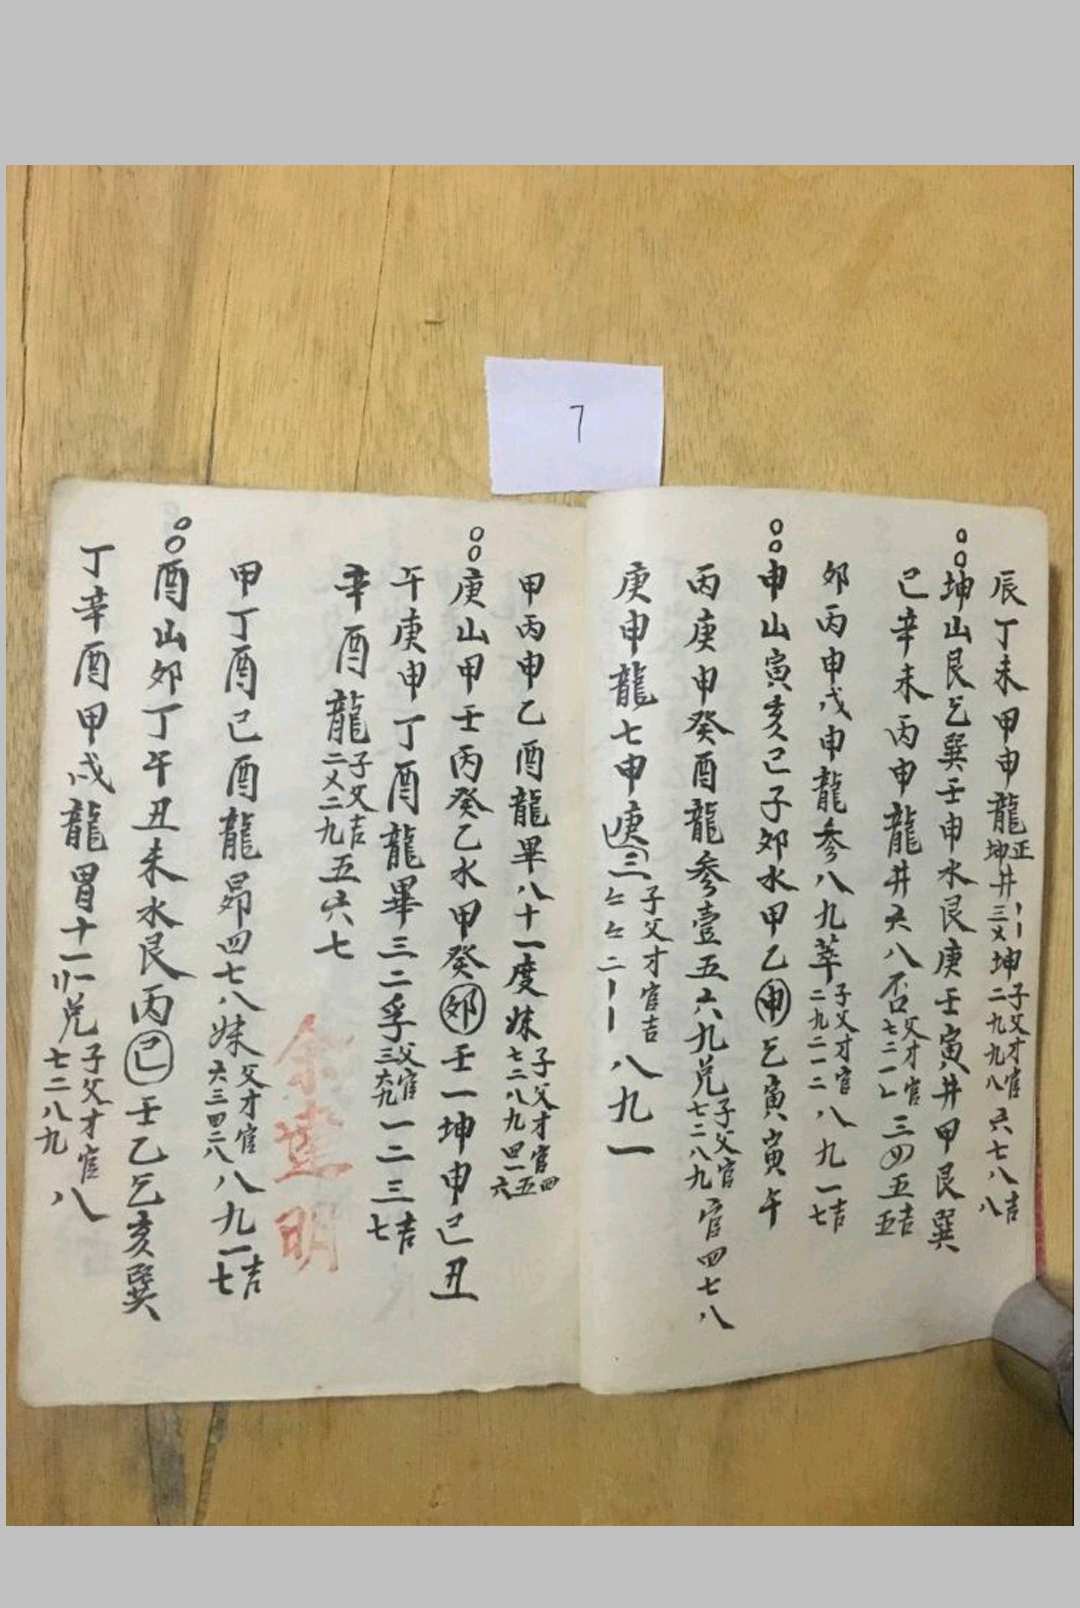 7
辰丁未甲申龍正坤井三乂坤子父才官二九九八六七八吉八
○○坤山艮乞巽壬申水艮庚壬寅井甲艮巽
已辛未丙申龍井六八否父才官七二一三四五吉五
卯丙申戊申龍參八九萃子父才官二九二一二八九一吉七
○○申山寅亥己子卯水甲乙申乞寅寅午
丙庚申癸酉龍參壹五六九兑子父官七二八九官四七八
庚申龍七申庚三子父才官吉八九一
甲丙申乙酉龍畢八十一度妹子父才官四七二八九四一五六
○○庚山甲壬丙癸乙水甲癸卯壬一坤申己丑
午庚申丁酉龍畢三二孚父官三六九一二三吉七
辛酉龍子父吉二乂二九五六七
余建明
甲丁酉己酉龍昴四七八妹父才官六三四二八八九一吉七
○○酉山卯丁午丑未水艮丙巳壬乙乞亥巽
丁辛酉甲戌龍胃十一归兑子父才官七二八九八